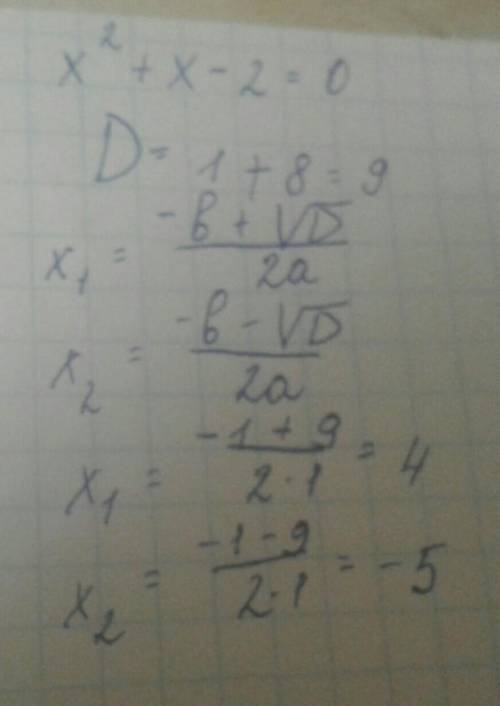 x² + x - 2 = 0
D = 1 + 8 = 9
x₁ = (-b + √D) / 2a
x₂ = (-b - √D) / 2a
x₁ = (-1 + 9) / (2 · 1) = 4
x₂ = (-1 - 9) / (2 · 1) = -5